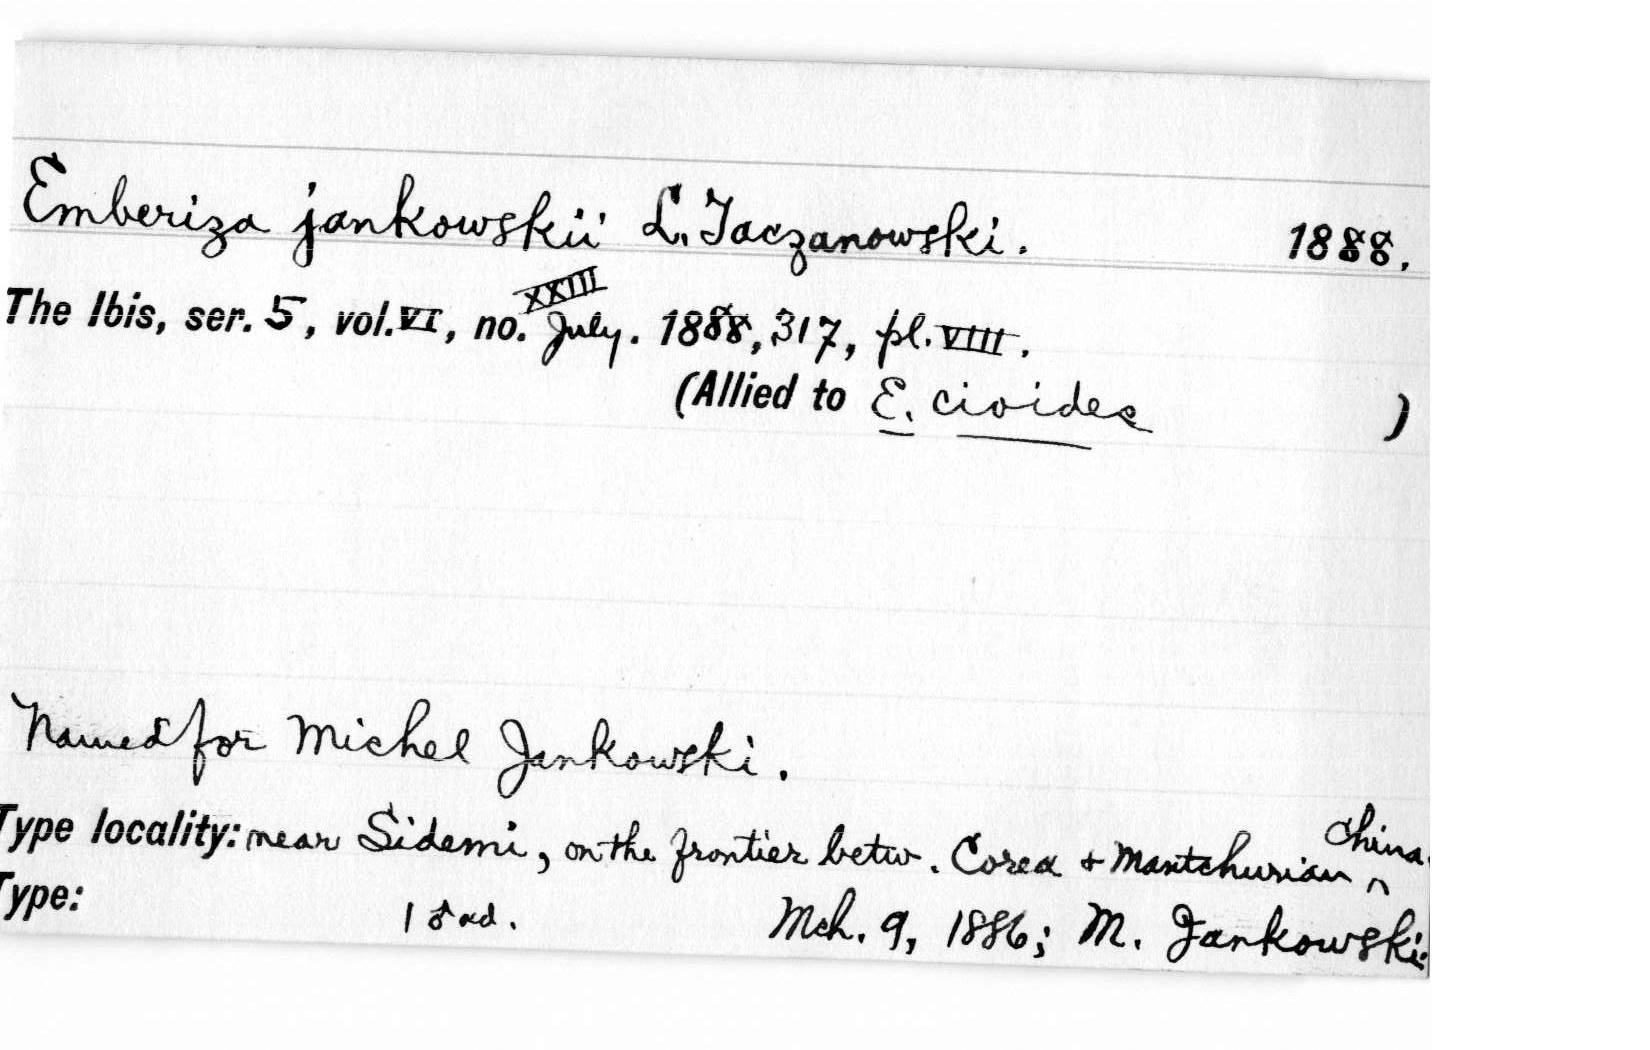 Emberiza jankowskii L. Taczanowski. 1888.
The Ibis, ser. 5, vol. VI, no. XXIII July. 1888, 317, pl. VIII.
(Allied to E. cioides )
Named for Michel Jankowski.
Type locality: near Sidemi, on the frontier betw. Corea + Mantchurian ^ China.
Type: 1 ♂ ad. Mch. 9, 1886; M. Jankowski.